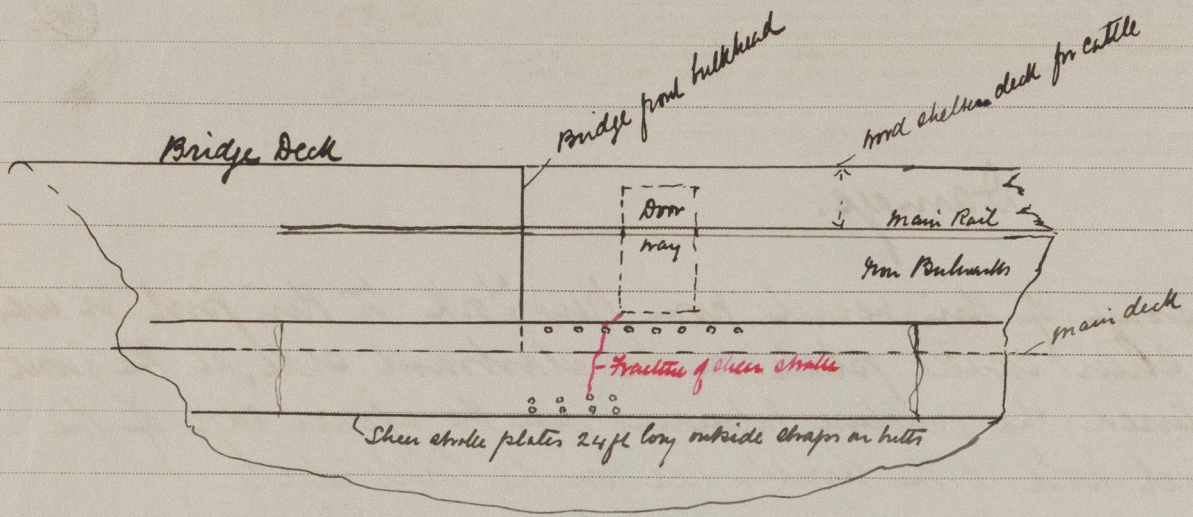 Bridge front bulkhead
wood shelter deck for cattle
Bridge Deck
Door
way
main Rail
Iron Bulwarks
main deck
Fracture of sheer strake
Sheer strake plates 24 ft long outside straps on butts